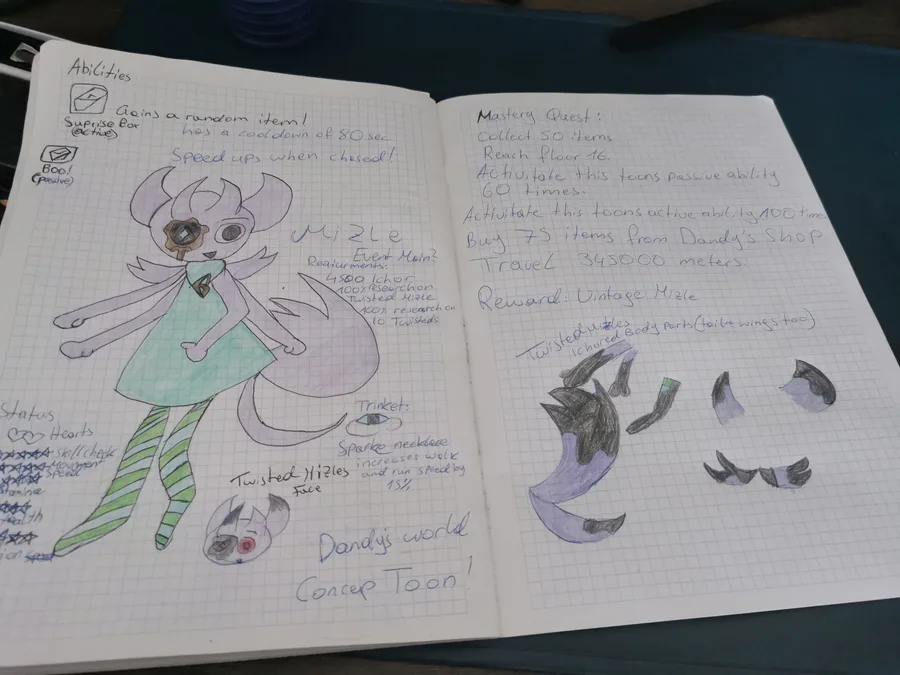 Abilities
Suprise Box
(active)
Gains a random item!
has a cooldown of 80 sec
Boo!
(passive)
Speed ups when chased!
Mizle
Event Main?
Reqiurments:
4500 Ichor
100% research on
Twisted Mizle
100% research on
10 Twisteds
Status
Hearts
skillcheck
Movement
speed
Trinket:
Sparke necklece
increases walk
and run speed by
15%
Twisted Mizles
Face
Dandy's world
Concep Toon!
Mastery Quest:
Collect 50 items
Reach floor 16.
Activitate this toons passive ability
60 times.
Activitate this toons active ability 100 times
Buy 75 items from Dandy's Shop
Travel 345000 meters.
Reward: Vintage Mizle
Twisted Mizles
Ichored Body parts (tail + wings too)